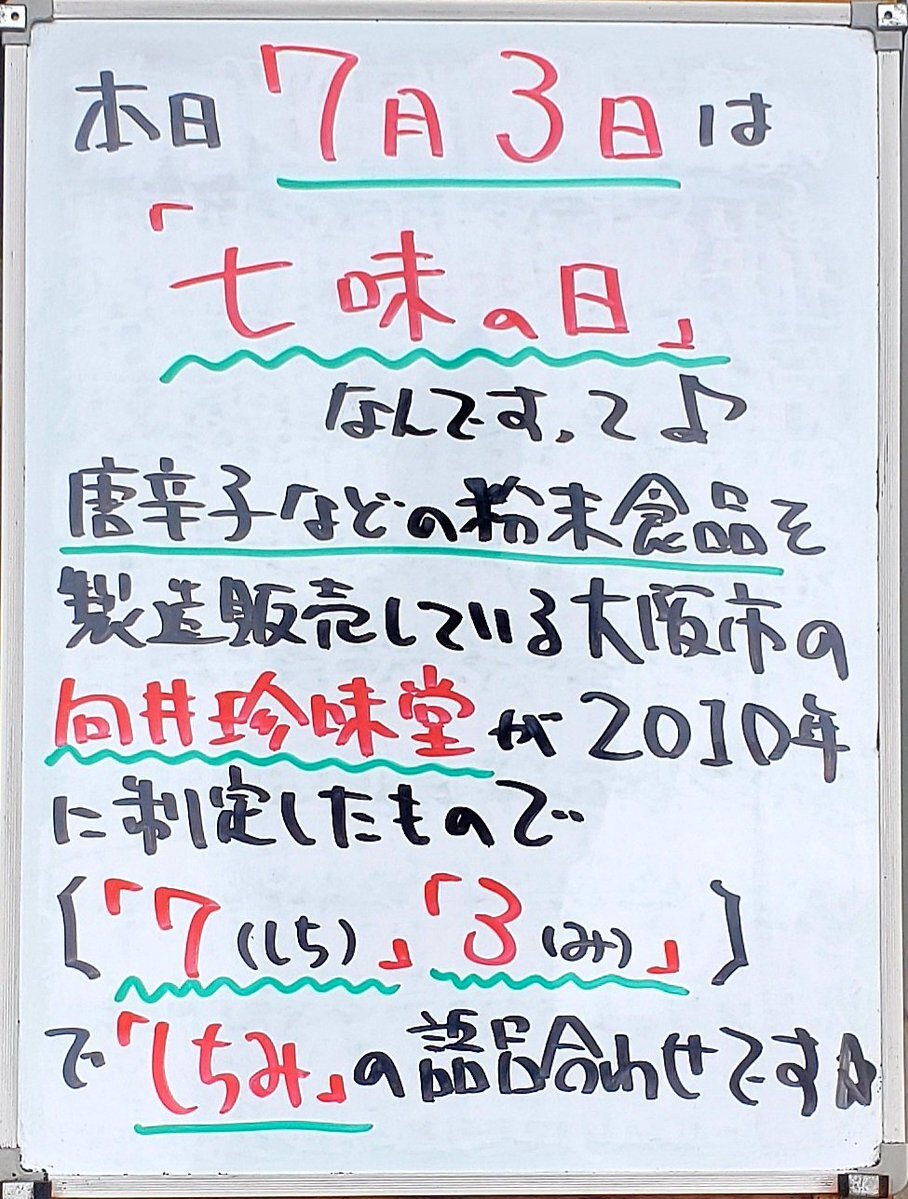 本日7月3日は
「七味の日」
なんです、て♪
唐辛子などの粉末食品を
製造販売している大阪市の
向井珍味堂が2010年
に制定したもので
[「7(しち)」「3(み)」]
で「しちみ」の語呂合わせです☆